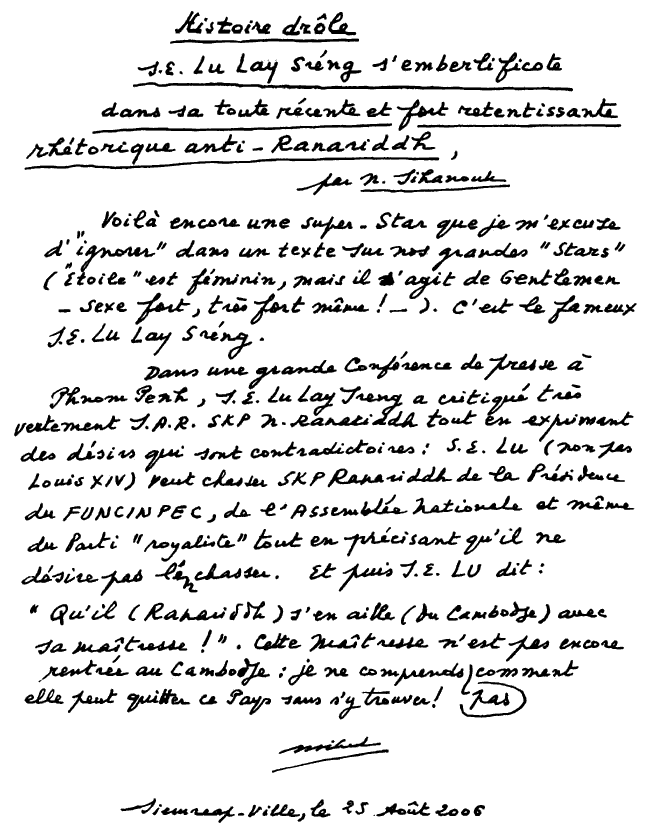 Histoire drôle
S.E. Lu Lay Sréng s'emberlificote
dans sa toute récente et fort retentissante
rhétorique anti-Ranariddh,
par N. Sihanouk
Voilà encore une super-Star que je m'excuse
d'"ignorer" dans un texte sur nos grandes "Stars"
("Étoile" est féminin, mais il s'agit de Gentlemen
- sexe fort, très fort même ! -). C'est le fameux
S.E. Lu Lay Sréng.
Dans une grande Conférence de presse à
Phnom Penh, S.E. Lu Lay Sreng a critiqué très
vertement S.A.R. SKP N. Ranariddh tout en exprimant
des désirs qui sont contradictoires : S.E. Lu (non pas
Louis XIV) veut chasser SKP Ranariddh de la Présidence
du FUNCINPEC, de l'Assemblée Nationale et même
du Parti "royaliste" tout en précisant qu'il ne
désire pas l'en chasser. Et puis S.E. LU dit :
"Qu'il (Ranariddh) s'en aille (du Cambodge) avec
sa maîtresse !". Cette Maîtresse n'est pas encore
rentrée au Cambodge : je ne comprends comment
elle peut quitter ce Pays sans s'y trouver ! pas
Siemreap-Ville, le 25 Août 2006